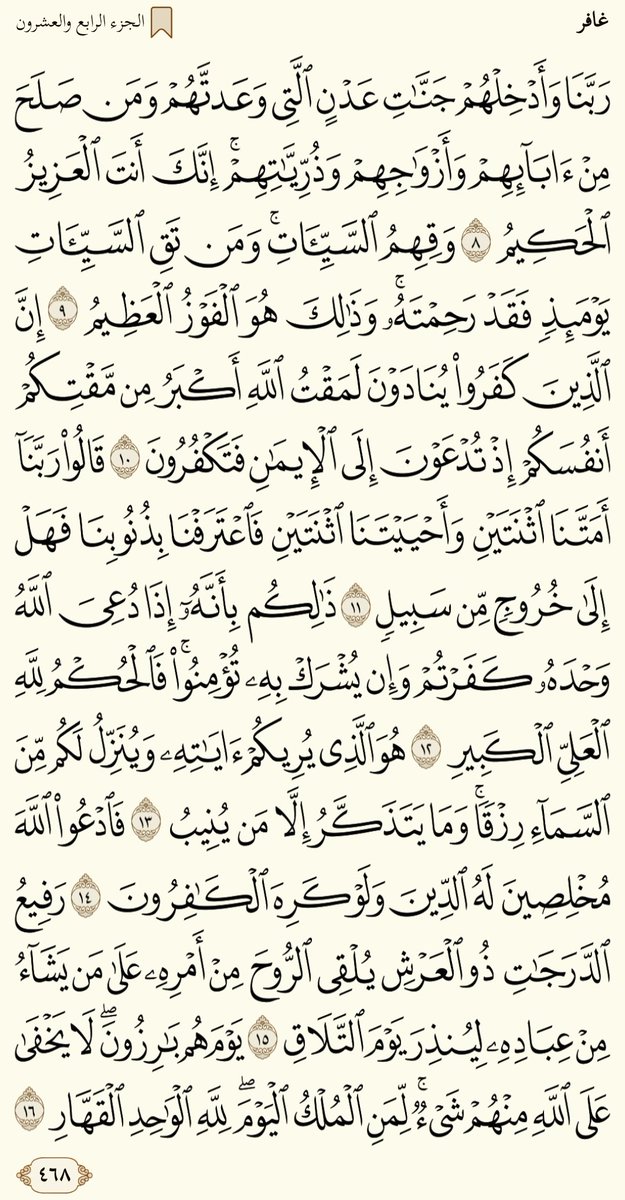 غافر
الجزء الرابع والعشرون
رَبَّنَا وَأَدۡخِلۡهُمۡ جَنَّٰتِ عَدۡنٍ ٱلَّتِي وَعَدتَّهُمۡ وَمَن صَلَحَ
مِنۡ ءَابَآئِهِمۡ وَأَزۡوَٰجِهِمۡ وَذُرِّيَّٰتِهِمۡۚ إِنَّكَ أَنتَ ٱلۡعَزِيزُ
ٱلۡحَكِيمُ ٨ وَقِهِمُ ٱلسَّيِّـَٔاتِۚ وَمَن تَقِ ٱلسَّيِّـَٔاتِ
يَوۡمَئِذٖ فَقَدۡ رَحِمۡتَهُۥۚ وَذَٰلِكَ هُوَ ٱلۡفَوۡزُ ٱلۡعَظِيمُ ٩ إِنَّ
ٱلَّذِينَ كَفَرُواْ يُنَادَوۡنَ لَمَقۡتُ ٱللَّهِ أَكۡبَرُ مِن مَّقۡتِكُمۡ
أَنفُسَكُمۡ إِذۡ تُدۡعَوۡنَ إِلَى ٱلۡإِيمَٰنِ فَتَكۡفُرُونَ ١٠ قَالُواْ رَبَّنَآ
أَمَتَّنَا ٱثۡنَتَيۡنِ وَأَحۡيَيۡتَنَا ٱثۡنَتَيۡنِ فَٱعۡتَرَفۡنَا بِذُنُوبِنَا فَهَلۡ
إِلَىٰ خُرُوجٖ مِّن سَبِيلٖ ١١ ذَٰلِكُم بِأَنَّهُۥٓ إِذَا دُعِيَ ٱللَّهُ
وَحۡدَهُۥ كَفَرۡتُمۡ وَإِن يُشۡرَكۡ بِهِۦ تُؤۡمِنُواْۚ فَٱلۡحُكۡمُ لِلَّهِ
ٱلۡعَلِيِّ ٱلۡكَبِيرِ ١٢ هُوَ ٱلَّذِي يُرِيكُمۡ ءَايَٰتِهِۦ وَيُنَزِّلُ لَكُم مِّنَ
ٱلسَّمَآءِ رِزۡقٗاۚ وَمَا يَتَذَكَّرُ إِلَّا مَن يُنِيبُ ١٣ فَٱدۡعُواْ ٱللَّهَ
مُخۡلِصِينَ لَهُ ٱلدِّينَ وَلَوۡ كَرِهَ ٱلۡكَٰفِرُونَ ١٤ رَفِيعُ
ٱلدَّرَجَٰتِ ذُو ٱلۡعَرۡشِ يُلۡقِي ٱلرُّوحَ مِنۡ أَمۡرِهِۦ عَلَىٰ مَن يَشَآءُ
مِنۡ عِبَادِهِۦ لِيُنذِرَ يَوۡمَ ٱلتَّلَاقِ ١٥ يَوۡمَ هُم بَٰرِزُونَۖ لَا يَخۡفَىٰ
عَلَى ٱللَّهِ مِنۡهُمۡ شَيۡءٞۚ لِّمَنِ ٱلۡمُلۡكُ ٱلۡيَوۡمَۖ لِلَّهِ ٱلۡوَٰحِدِ ٱلۡقَهَّارِ ١٦
٤٦٨